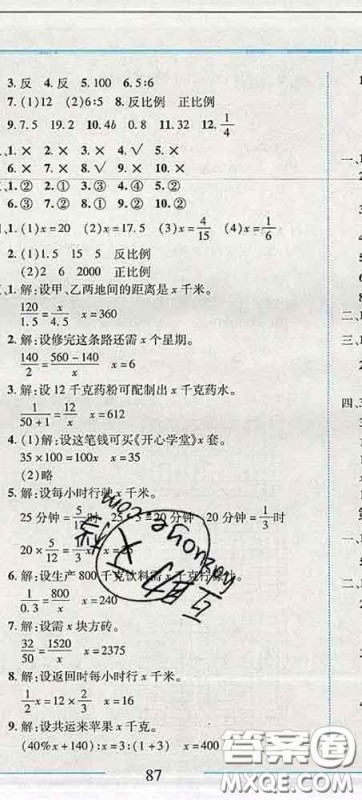 3.反 4.反 5.100 6.5:6
7.(1)12 (2)6:5 8.反比例 正比例
9.7.5 19.2 10.4b 0.8 11.32 12.1/4
1.× 2.× 3.× 4.√ 5.×
6.× 7.× 8.√ 9.× 10.×
1.② 2.① 3.③ 4.② 5.②
6.③ 7.② 8.② 9.② 10.②
1.(1)x=20 (2)x=17.5 (3)x=4/15 (4)x=1/6
2.(1)1.5 15 5 反比例
(2)2 6 2000 正比例
1.解:设甲、乙两地间的距离是x千米。
120/1.5=x/4.5 x=360
2.解:设修完这条路还需x个星期。
140/2=560-140/x x=6
3.解:设12千克药粉可配制出x千克药水。
1/50+1=12/x x=612
4.(1)解:设这笔钱可买《开心学堂》x套。
35×100=100x x=35
(2)略
5.解:设每小时行驶x千米。
25分钟=5/12时 25-5=20(分钟) 20分钟=1/3时
20×5/12=1/3x
6.解:设生产800千克饮料需x千克
1/0.3=800/x x=240
7.解:设需x块方砖。
32/50=1520/x x=2375
8.解:设返回时每小时行x千米。
1/2x=12×2 x=
9.解:设共运来苹果x千克。
(40%x+140):x=3:(1+3) x=400
87
一、
二、
三、
四、
答案圈
MXQE.COM